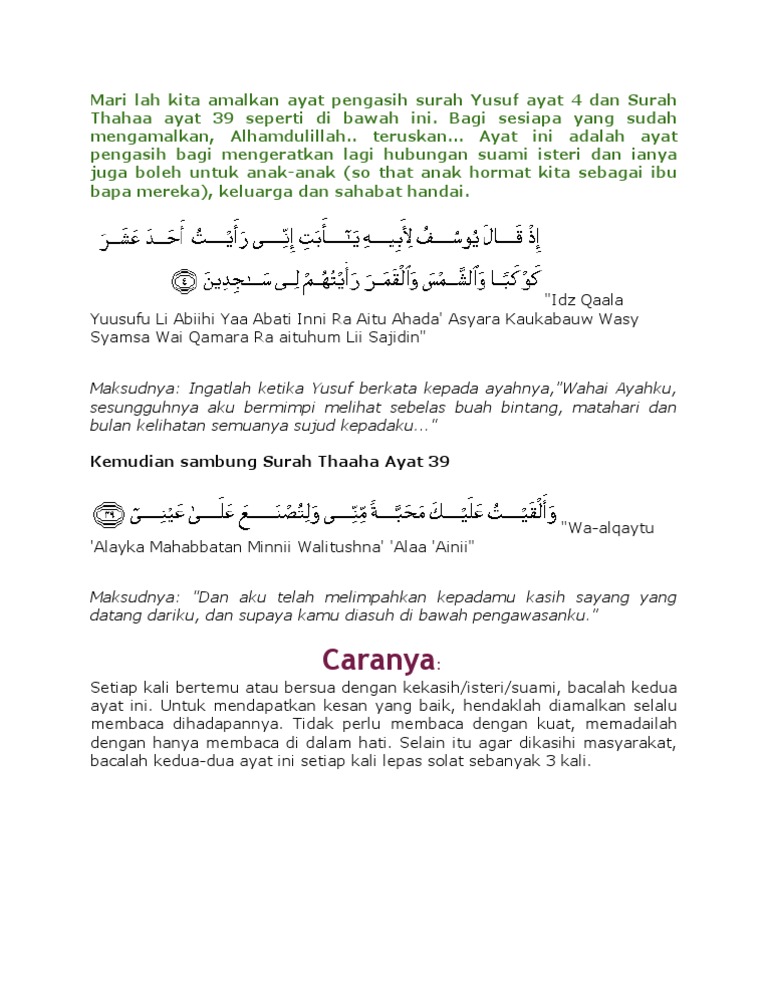 Mari lah kita amalkan ayat pengasih surah Yusuf ayat 4 dan Surah
Thahaa ayat 39 seperti di bawah ini. Bagi sesiapa yang sudah
mengamalkan, Alhamdulillah.. teruskan... Ayat ini adalah ayat
pengasih bagi mengeratkan lagi hubungan suami isteri dan ianya
juga boleh untuk anak-anak (so that anak hormat kita sebagai ibu
bapa mereka), keluarga dan sahabat handai.
إِذْ قَالَ يُوسُفُ لِأَبِيهِ يَـٰٓأَبَتِ إِنِّى رَأَيْتُ أَحَدَ عَشَرَ
كَوْكَبًا وَٱلشَّمْسَ وَٱلْقَمَرَ رَأَيْتُهُمْ لِى سَـٰجِدِينَ ﴿٤﴾ "Idz Qaala
Yuusufu Li Abiihi Yaa Abati Inni Ra Aitu Ahada' Asyara Kaukabauw Wasy
Syamsa Wai Qamara Ra aituhum Lii Sajidin"
Maksudnya: Ingatlah ketika Yusuf berkata kepada ayahnya,"Wahai Ayahku,
sesungguhnya aku bermimpi melihat sebelas buah bintang, matahari dan
bulan kelihatan semuanya sujud kepadaku..."
Kemudian sambung Surah Thaaha Ayat 39
وَأَلْقَيْتُ عَلَيْكَ مَحَبَّةً مِّنِّى وَلِتُصْنَعَ عَلَىٰ عَيْنِىٓ ﴿٣٩﴾ "Wa-alqaytu
'Alayka Mahabbatan Minnii Walitushna' 'Alaa 'Ainii"
Maksudnya: "Dan aku telah melimpahkan kepadamu kasih sayang yang
datang dariku, dan supaya kamu diasuh di bawah pengawasanku."
Caranya:
Setiap kali bertemu atau bersua dengan kekasih/isteri/suami, bacalah kedua
ayat ini. Untuk mendapatkan kesan yang baik, hendaklah diamalkan selalu
membaca dihadapannya. Tidak perlu membaca dengan kuat, memadailah
dengan hanya membaca di dalam hati. Selain itu agar dikasihi masyarakat,
bacalah kedua-dua ayat ini setiap kali lepas solat sebanyak 3 kali.